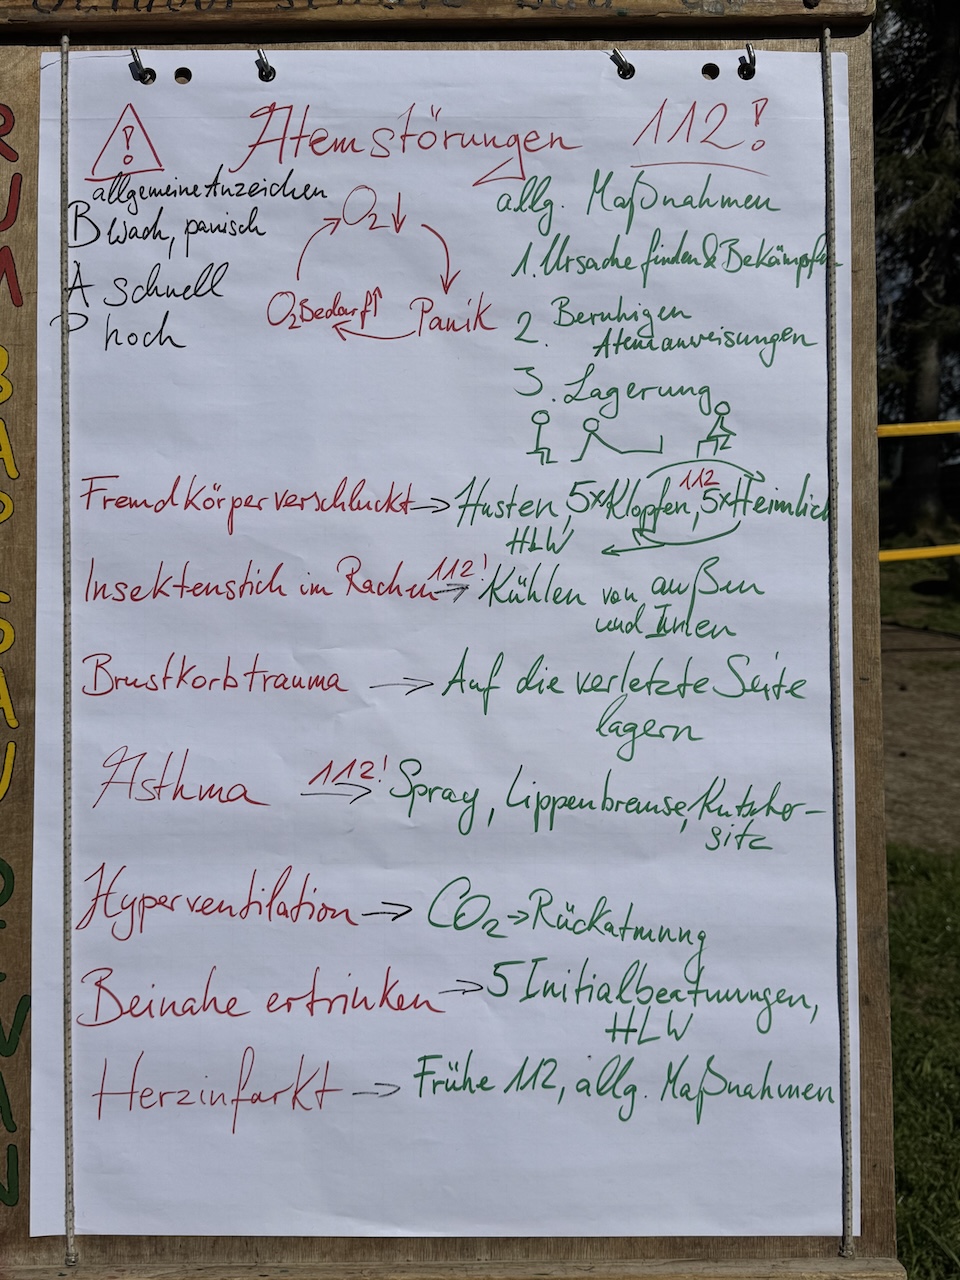 Atemstörungen 112!
!
allgemeine Anzeichen
B wach, panisch
A schnell
P hoch
O2↓
Panik
O2Bedarf↑
allg. Maßnahmen
1. Ursache finden & Bekämpfen
2. Beruhigen
Atemanweisungen
3. Lagerung
Fremdkörper verschluckt → Husten, 5x Klopfen, 5x Heimlich
112
HLW
Insektenstich im Rachen 112! → Kühlen von außen
und Innen
Brustkorbtrauma → Auf die verletzte Seite
lagern
Asthma 112! → Spray, Lippenbremse, Kutscher-
sitz
Hyperventilation → CO2 → Rückatmung
Beinahe ertrinken → 5 Initialbeatmungen,
HLW
Herzinfarkt → Frühe 112, allg. Maßnahmen